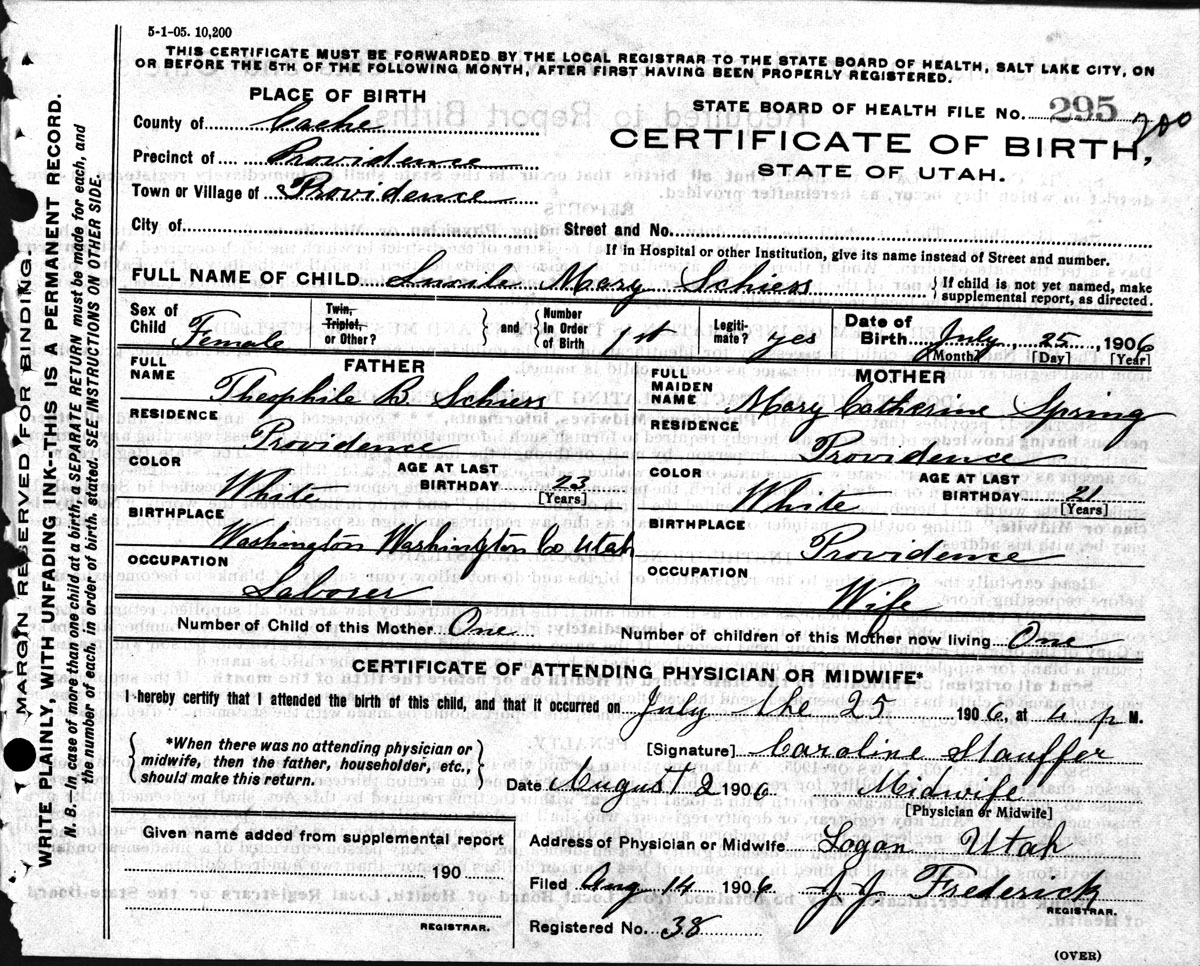 5-1-05. 10,200
THIS CERTIFICATE MUST BE FORWARDED BY THE LOCAL REGISTRAR TO THE STATE BOARD OF HEALTH, SALT LAKE CITY, ON
OR BEFORE THE 5TH OF THE FOLLOWING MONTH, AFTER FIRST HAVING BEEN PROPERLY REGISTERED.
PLACE OF BIRTH
STATE BOARD OF HEALTH FILE NO. 295 200
County of Cache
CERTIFICATE OF BIRTH,
Precinct of Providence
STATE OF UTAH.
Town or Village of Providence
City of Street and No.
If in Hospital or other Institution, give its name instead of Street and number.
FULL NAME OF CHILD Lucile Mary Schiess { If child is not yet named, make
supplemental report, as directed.
Sex of Child Female
Twin, Triplet, or Other? } and { Number in Order of Birth 1st
Legiti-mate? yes
Date of Birth July 25, 1906
[Month] [Day] [Year]
FATHER
FULL NAME Theophile B. Schiess
MOTHER
FULL MAIDEN NAME Mary Catherine Spring
RESIDENCE Providence
RESIDENCE Providence
COLOR White
AGE AT LAST BIRTHDAY 23
[Years]
COLOR White
AGE AT LAST BIRTHDAY 21
[Years]
BIRTHPLACE Washington Washington Co Utah
BIRTHPLACE Providence
OCCUPATION Laborer
OCCUPATION Wife
Number of Child of this Mother One
Number of children of this Mother now living One
CERTIFICATE OF ATTENDING PHYSICIAN OR MIDWIFE*
I hereby certify that I attended the birth of this child, and that it occurred on July the 25 1906, at 4 P M.
{ *When there was no attending physician or
midwife, then the father, householder, etc.,
should make this return. }
[Signature] Caroline Stauffer
Date August 2 1906. Midwife
[Physician or Midwife]
Given name added from supplemental report
190
REGISTRAR.
Address of Physician or Midwife Logan Utah
Filed Aug 14 1906 J J Frederick
REGISTRAR.
Registered No. 38
(OVER)
MARGIN RESERVED FOR BINDING.
WRITE PLAINLY, WITH UNFADING INK--THIS IS A PERMANENT RECORD.
N. B.--In case of more than one child at a birth, a SEPARATE RETURN must be made for each, and
the number of each, in order of birth, stated. SEE INSTRUCTIONS ON OTHER SIDE.